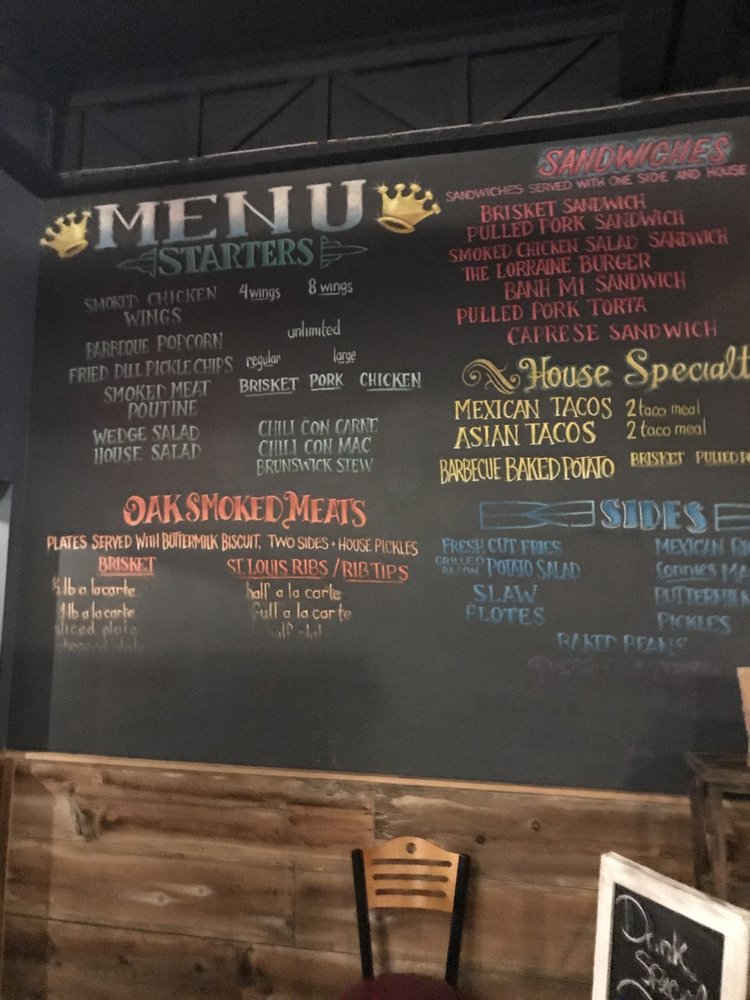 MENU
STARTERS
SMOKED CHICKEN WINGS 4 wings 8 wings
BARBEQUE POPCORN unlimited
FRIED DILL PICKLE CHIPS regular large
SMOKED MEAT POUTINE BRISKET PORK CHICKEN
WEDGE SALAD
HOUSE SALAD
CHILI CON CARNE
CHILI CON MAC
BRUNSWICK STEW
OAK SMOKED MEATS
PLATES SERVED WITH BUTTERMILK BISCUIT, TWO SIDES + HOUSE PICKLES
BRISKET
lb a la carte
1 lb a la carte
sliced plate
chopped plat
ST. LOUIS RIBS / RIB TIPS
half a la carte
full a la carte
half plat
SANDWICHES
SANDWICHES SERVED WITH ONE SIDE AND HOUSE
BRISKET SANDWICH
PULLED PORK SANDWICH
SMOKED CHICKEN SALAD SANDWICH
THE LORRAINE BURGER
BANH MI SANDWICH
PULLED PORK TORTA
CAPRESE SANDWICH
House Specialt
MEXICAN TACOS 2 taco meal
ASIAN TACOS 2 taco meal
BARBECUE BAKED POTATO BRISKET PULLED PO
SIDES
FRESH CUT FRIES
GRILLED BACON POTATO SALAD
SLAW
ELOTES
MEXICAN RI
CONNIE'S MA
BUTTERMILK
PICKLES
BAKED BEANS
Drink